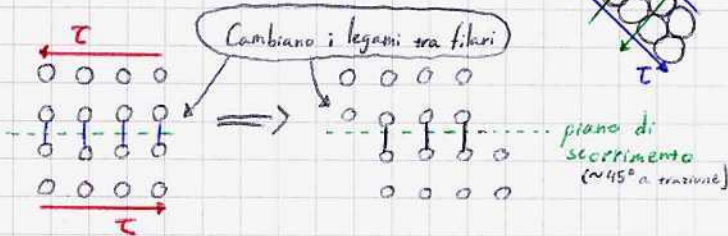 τ
Cambiano i legami tra filari
τ
piano di
scorrimento
(~45° a trazione)
τ